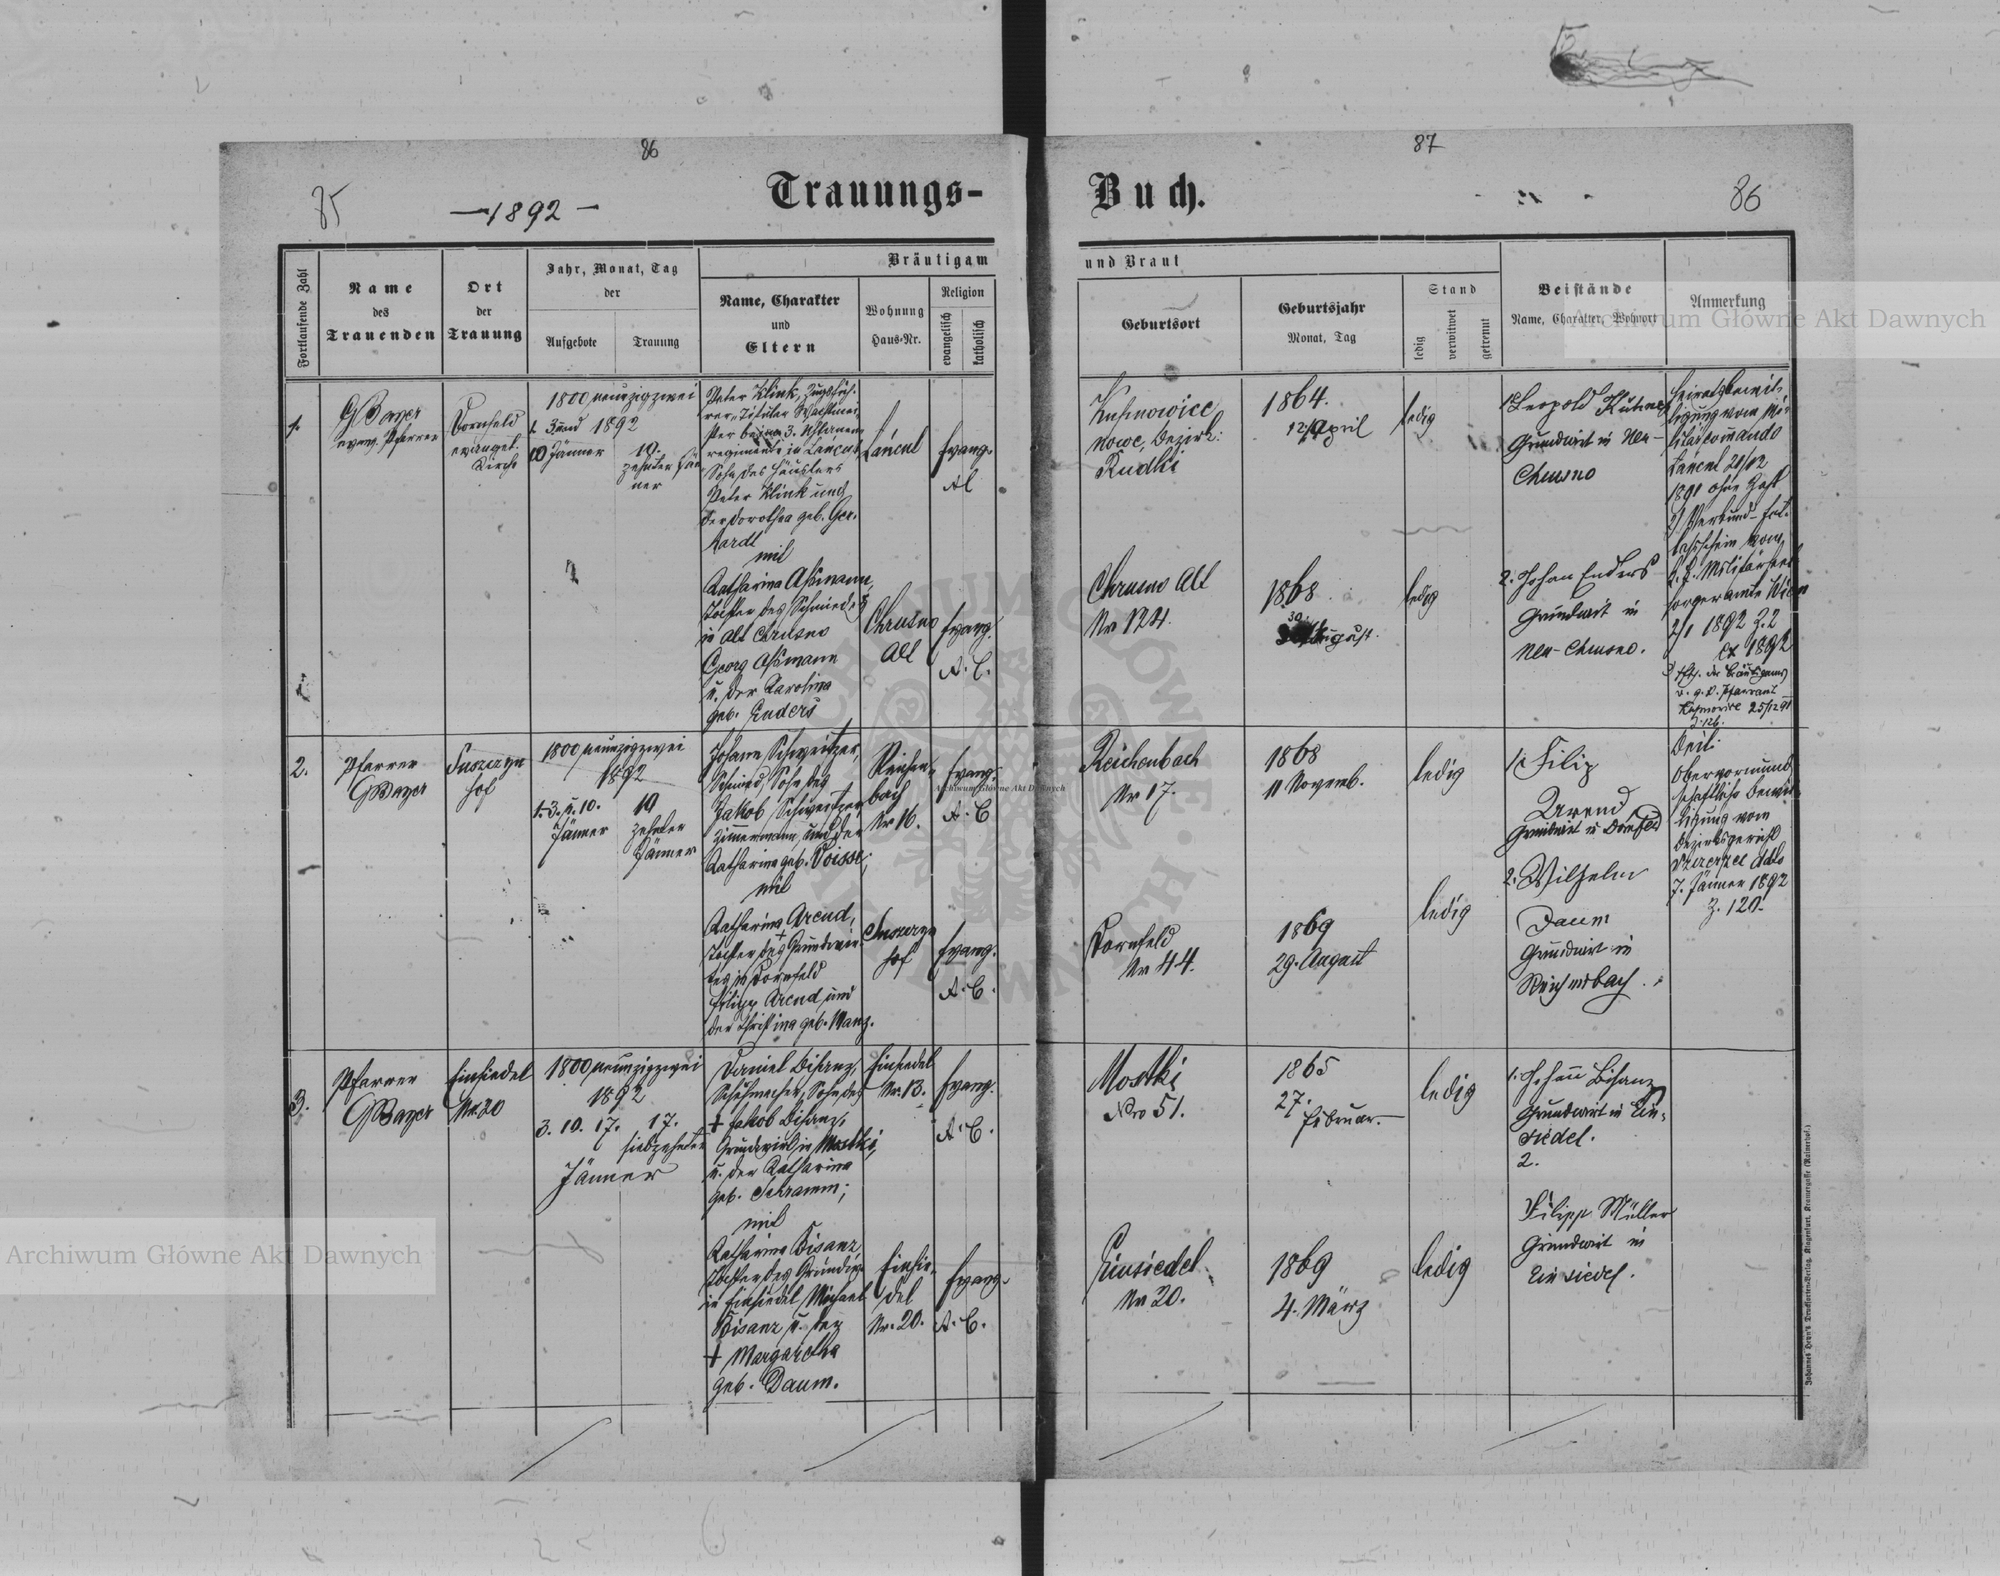 86
87
85
—1892—
Trauungs-
Buch.
86
Fortlaufende Zahl
Name
des
Trauenden
Ort
der
Trauung
Jahr, Monat, Tag
der
Aufgebote
Trauung
Bräutigam
Name, Charakter
und
Eltern
Wohnung
Haus-Nr.
Religion
evangelisch
katholisch
und Braut
Geburtsort
Geburtsjahr
Monat, Tag
Stand
ledig
verwitwet
getrennt
Beistände
Name, Charakter, Wohnort
Anmerkung
Archiwum Główne Akt Dawnych
1.
GBayer
evang. Pfarrer
Dornfeld
evangel.
Kirche
1800 neunzigzwei
1892
10 Jänner
10.
zehnter Jän
ner
Peter Klink, Zugsfüh-
rer, Titular Wachtmei-
ster beim 3. Uhlanen
regimente in Lancut,
Sohn des Häuslers
Peter Klink und
der Dorothea geb. Ger-
hardt
mit
Katharina Aßmann,
Tochter des Schmiedes
in Alt Chrusno
Georg Aßmann
u. der Karolina
geb. Enders
Lancut
Chrusno
Alt
Evang.
Evang.
A. C.
Rudki
Chrusno Alt
Nr 124.
1864.
12/April
1868
30
August.
ledig
ledig
1. Leopold
Grundwirt in Neu-
Chrusno
2. Johan Enders
Grundwirt in
Neu-Chrusno.
Heiratsbewil-
ligung vom Mi-
litärcommando
Lancut 20/12
1891 ohne Zahl
2/1 1892 Z. 2
ex 1892
2.
Pfarrer
GBayer
Suszczyn
hof
1800 neunzigzwei
1892
1. 3. u. 10.
Jänner
10
zehnter
Jänner
Johann Schweitzer,
Schmied, Sohn des
Jakob Schweitzer,
Zimmermann, und der
Katharina geb. Voisse;
mit
Katharina Arend,
Tochter des Grundwir-
tes in Dornfeld
Filipp Arend und
der Christina geb. Manz.
Reichen-
bach
Nr 16.
Suszczyn
hof
Evang.
A. C
Evang.
A. C.
Reichenbach
Nr 17.
Dornfeld
Nr 44.
1868
11 Novemb.
1869
29. August
ledig
ledig
1. Filip
Arend
Grundwirt in Dornfeld
2. Wilhelm
Daum
Grundwirt in
Reichenbach.
Obervormund-
schaftliche Bewil-
ligung vom
Bezirksgericht
7. Jänner 1892
Z. 120.
Archiwum Główne Akt Dawnych
3.
Pfarrer
GBayer
Einsiedel
Nr. 20
1800 neunzigzwei
1892
3. 10. 17.
17.
siebzehnter
Jänner
Daniel Bisanz,
Schuhmacher, Sohn des
+ Jakob Bisanz,
Grundwirth in Mostki,
u. der Katharina
geb. Schramm;
mit
Katharina Bisanz,
Tochter des Grundwir
in Einsiedel Michael
Bisanz u. der
+ Margaretha
geb. Daum.
Einsiedel
Nr. 13.
Einsie-
del
Nr. 20.
Evang.
A. C.
Evang.
A. C.
Mostki
Nro 51.
Einsiedel
Nr 20.
1865
27.
Februar.
1869
4. März
ledig
ledig
1. Johann Bisanz
Grundwirt in Ein-
siedel.
2.
Filipp Müller
Grundwirt in
Einsiedel.
Archiwum Główne Akt Dawnych